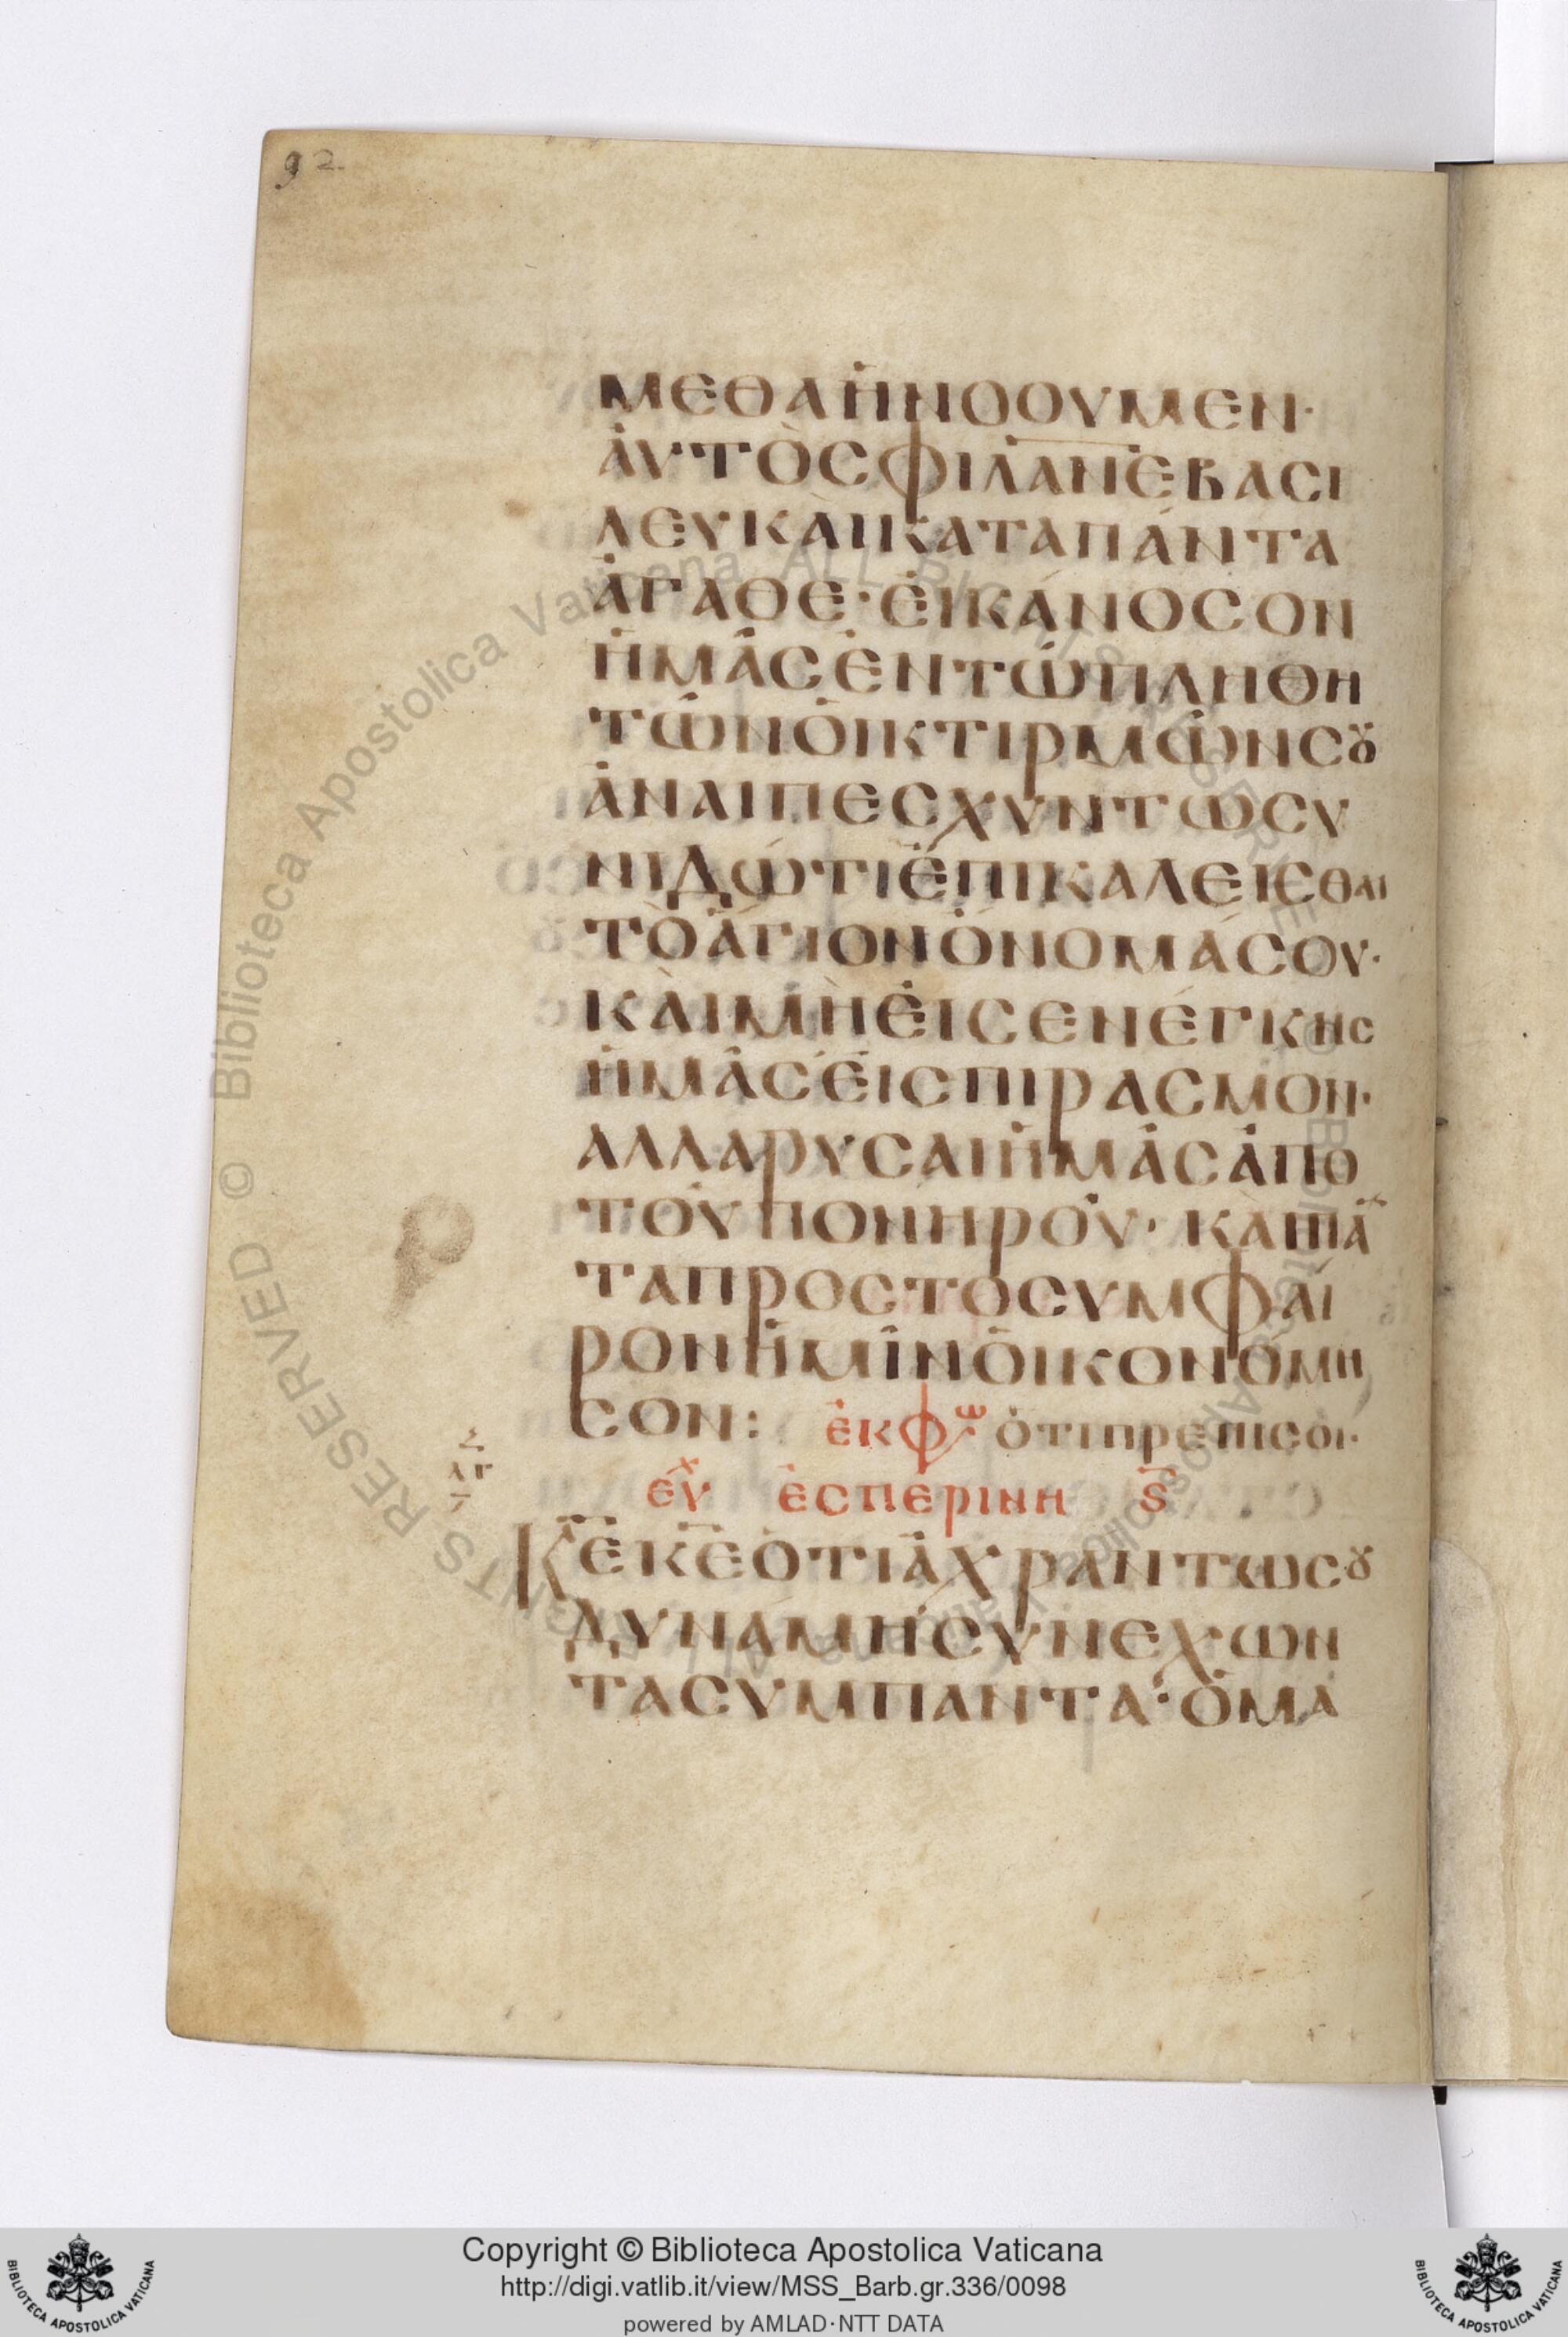 92
ΜΕΘΑΗΝΟΟΥΜΕΝ·
ΑΥΤΟΣΦΙΛΑΝΕΒΑΣΙ
ΛΕΥΚΑΙΚΑΤΑΠΑΝΤΑ
ΑΓΑΘΕ·ΕΙΚΑΝΟΣΟΝ
ΗΜΑΣΕΝΤΩΠΛΗΘΗ
ΤΩΝΟΙΚΤΙΡΜΩΝΣȢ
ΑΝΑΙΠΕΣΧΥΝΤΩΣΥ
ΝΙΔΩΤΙΕΠΙΚΑΛΕΙΣΘΑΙ
ΤΟΑΓΙΟΝΟΝΟΜΑΣΟΥ·
ΚΑΙΜΗΕΙΣΕΝΕΓΚΗΣ
ΗΜΑΣΕΙΣΠΙΡΑΣΜΟΝ·
ΑΛΛΑΡΥΣΑΙΗΜΑΣΑΠΟ
ΤΟΥΠΟΝΗΡΟΥ· ΚΑΙΠΑ
ΤΑΠΡΟΣΤΟΣΥΜΦΑΙ
ΡΟΝΗΜΙΝΟΙΚΟΝΟΜΗ
ΣΟΝ: ΕΚΦΩ ΟΤΙΠΡΕΠΙΣΟΙ·
ΕΥΧ ΕΣΠΕΡΙΝΗ Ϛ
Κ̅Ε̅Κ̅Ε̅ΟΤΙΑΧΡΑΝΤΩΣȢ
ΔΥΝΑΜΗΣΥΝΕΧΩΝ
ΤΑΣΥΜΠΑΝΤΑ·ΟΜΑ
© Biblioteca Apostolica Vaticana ALL RIGHTS RESERVED
Copyright © Biblioteca Apostolica Vaticana
http://digi.vatlib.it/view/MSS_Barb.gr.336/0098
powered by AMLAD·NTT DATA
BIBLIOTECA APOSTOLICA VATICANA
BIBLIOTECA APOSTOLICA VATICANA